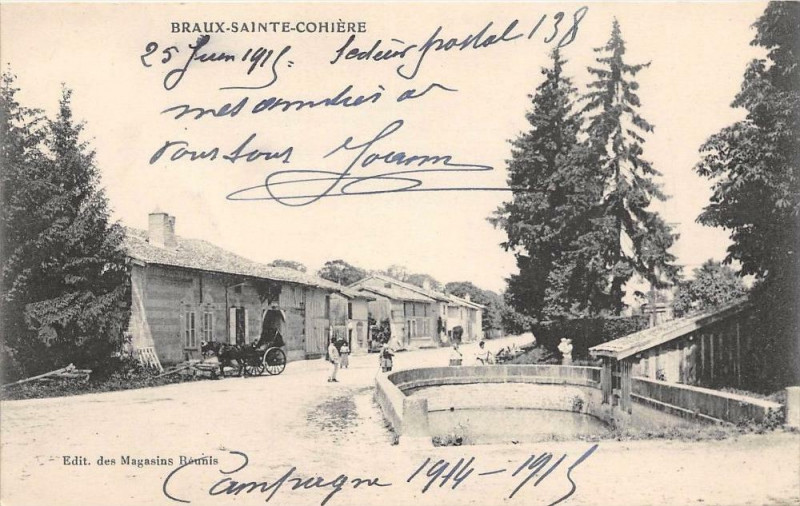 BRAUX-SAINTE-COHIÈRE
25 Juin 1915. Secteur postal 138
mes amitiés à
vous tous
Edit. des Magasins Réunis
Campagne 1914-1915